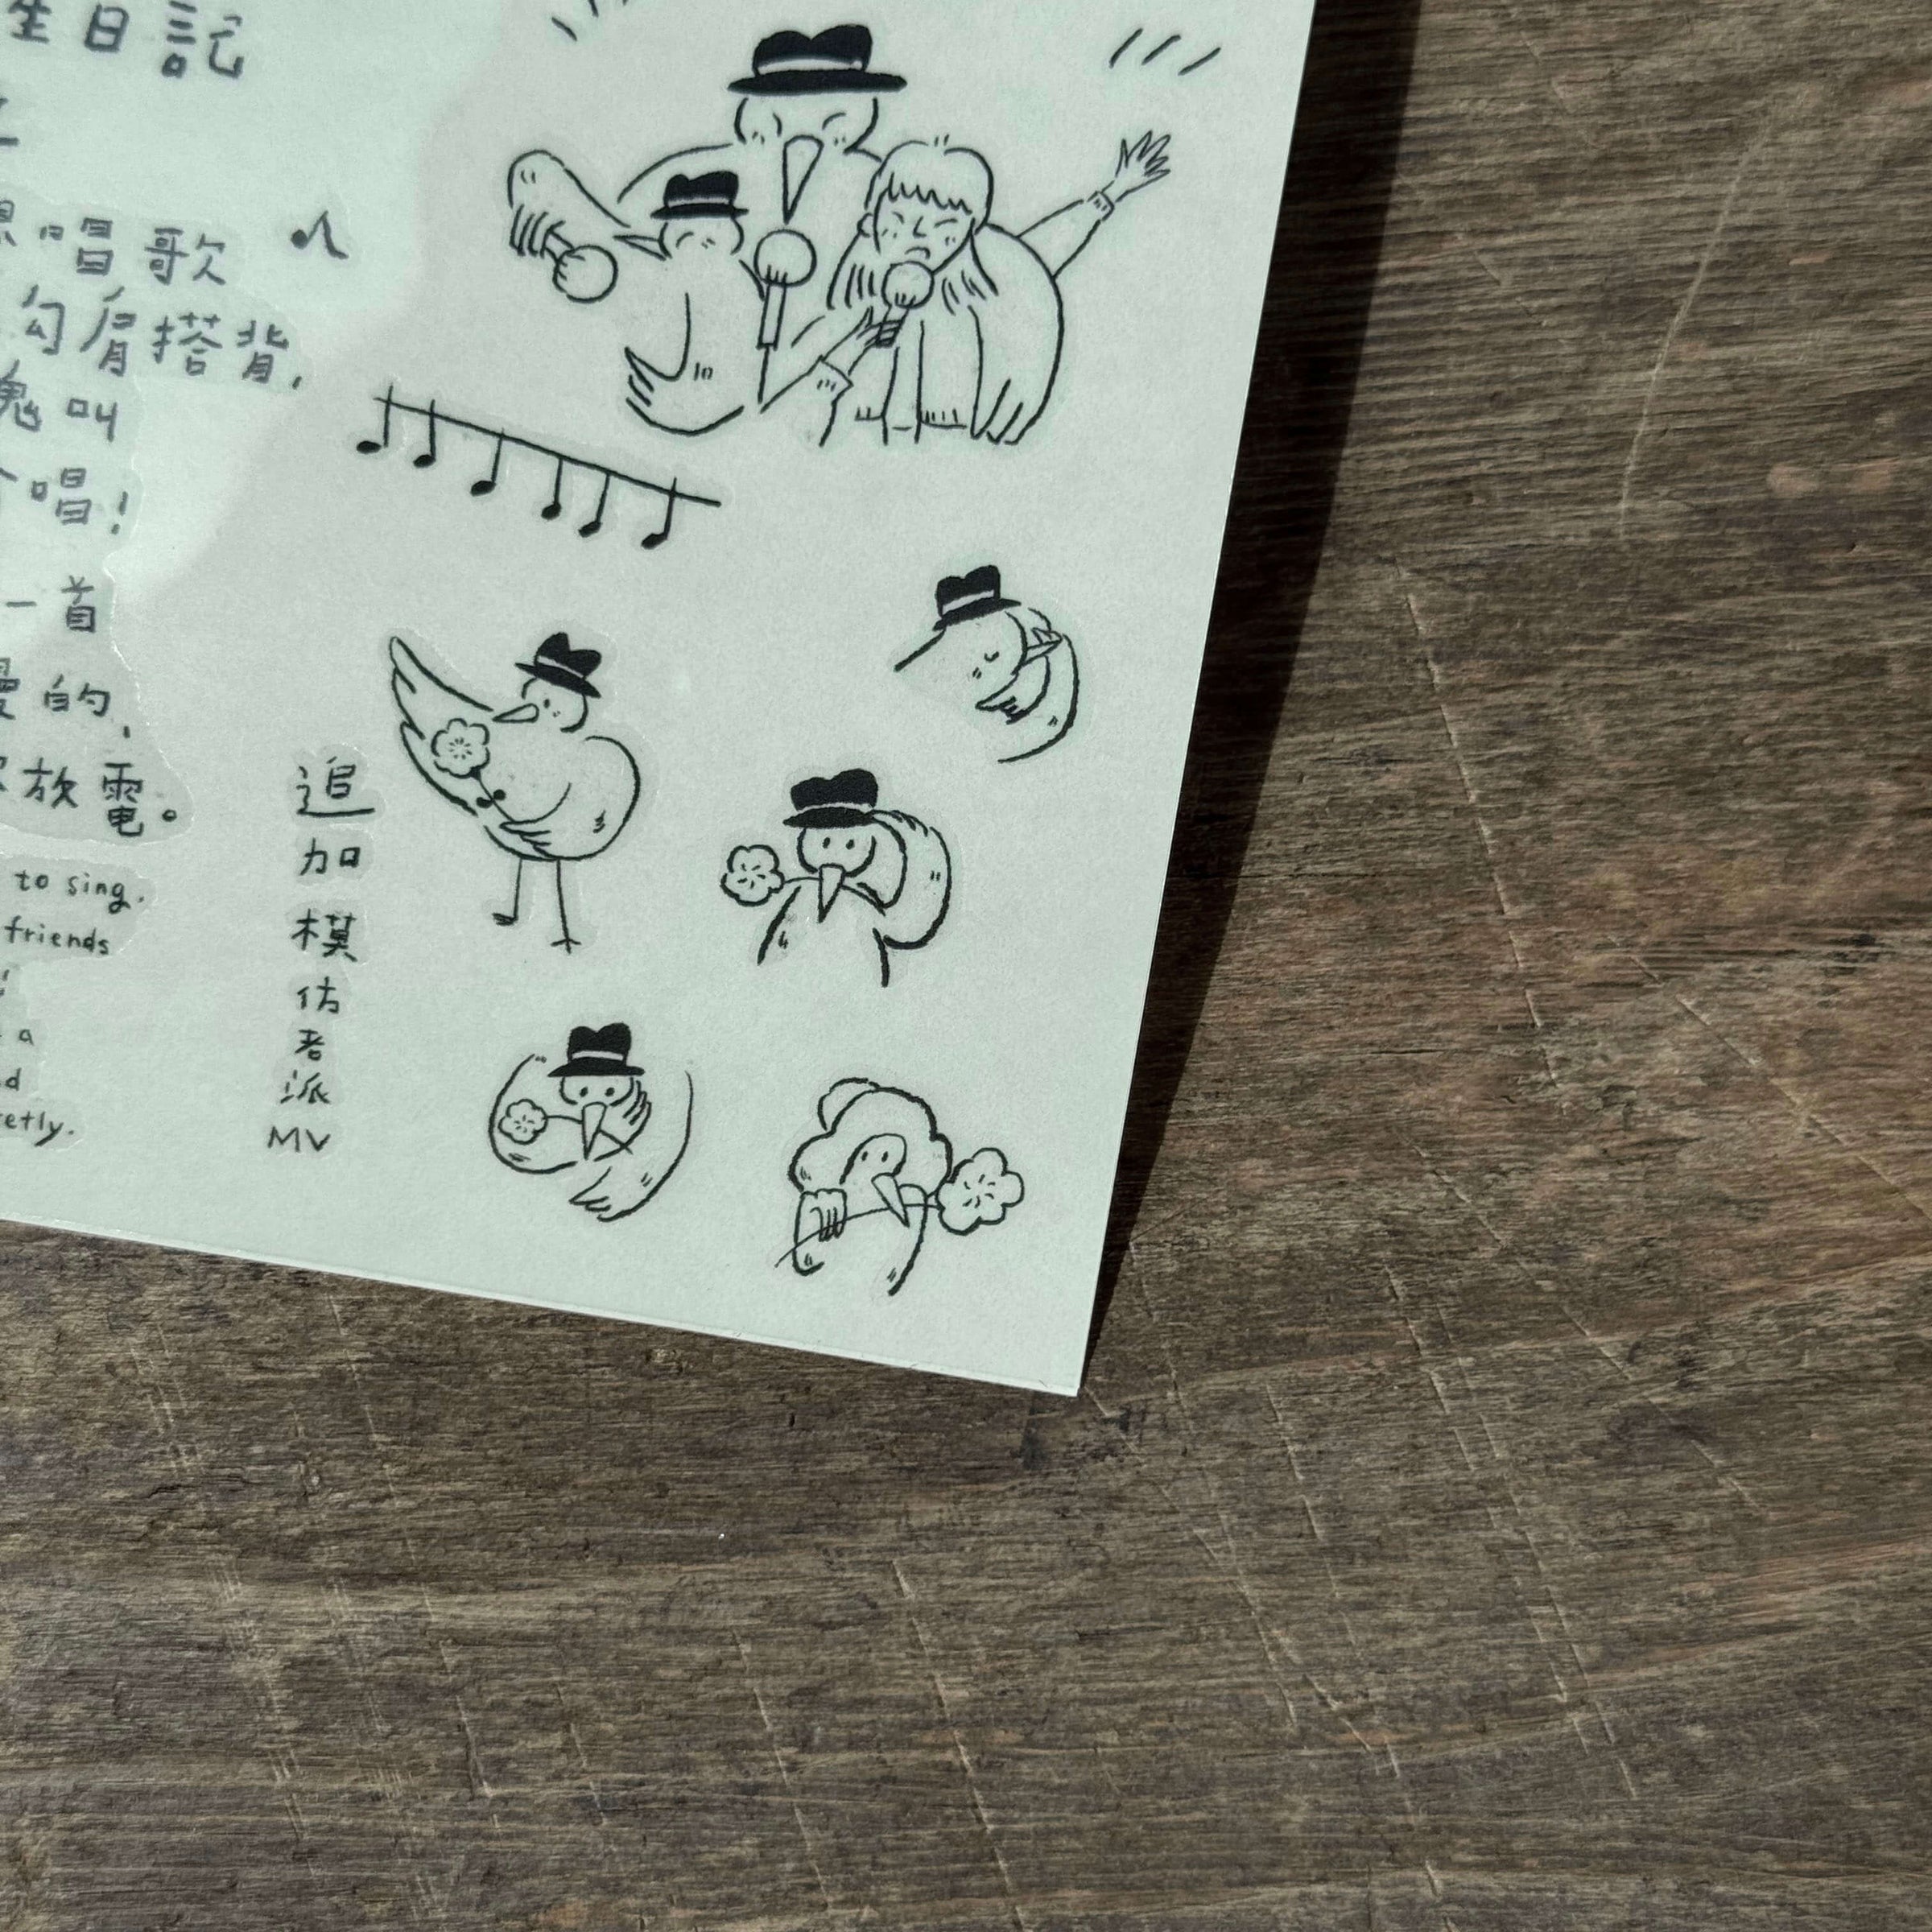 生日記
唱歌
勾肩搭背,
叫
唱!
一首
的,
放電。
to sing.
friends
!
a
d
etly.
追
加
模
仿
老
派
MV